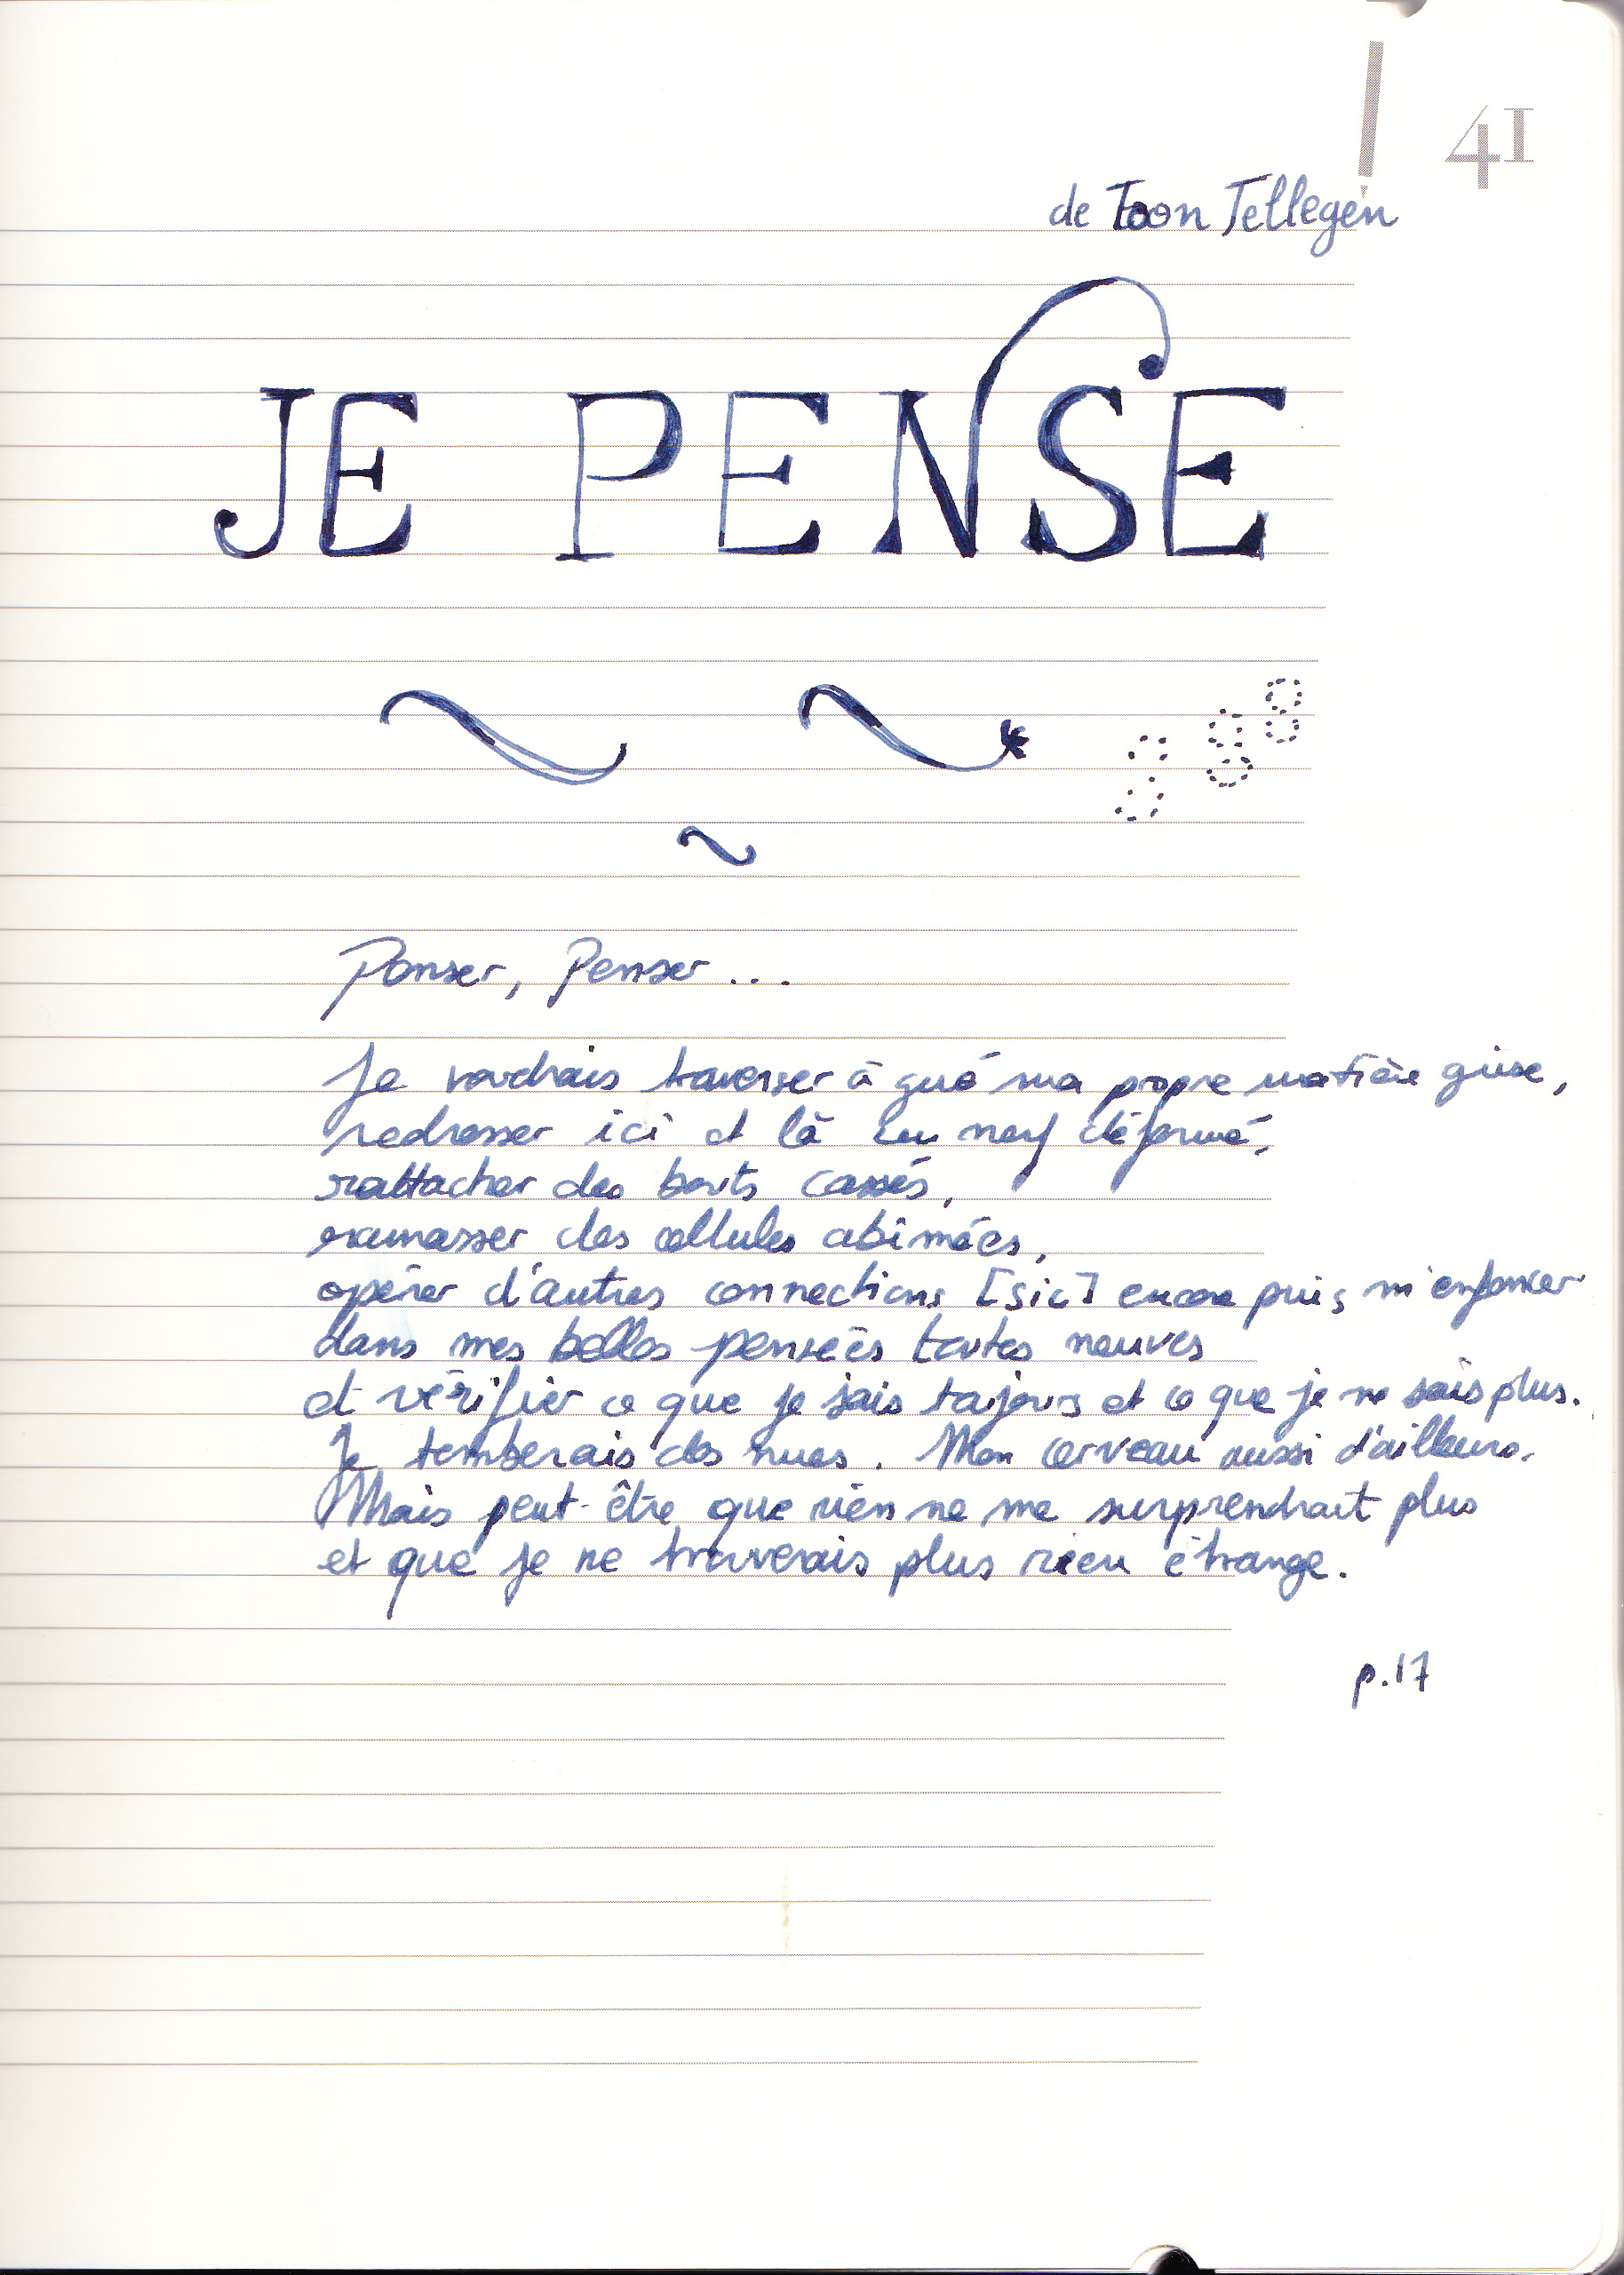 41
de Toon Tellegen
JE PENSE
Penser, Penser...
Je voudrais traverser à gué ma propre matière grise,
redresser ici et là un nerf déformé,
rattacher des bouts cassés,
ramasser des cellules abîmées,
opérer d'autres connections [sic] encore puis m'enfoncer
dans mes belles pensées toutes neuves
et vérifier ce que je sais toujours et ce que je ne sais plus.
Je tomberais des nues. Mon cerveau aussi d'ailleurs.
Mais peut-être que rien ne me surprendrait plus
et que je ne trouverais plus rien étrange.
p.17